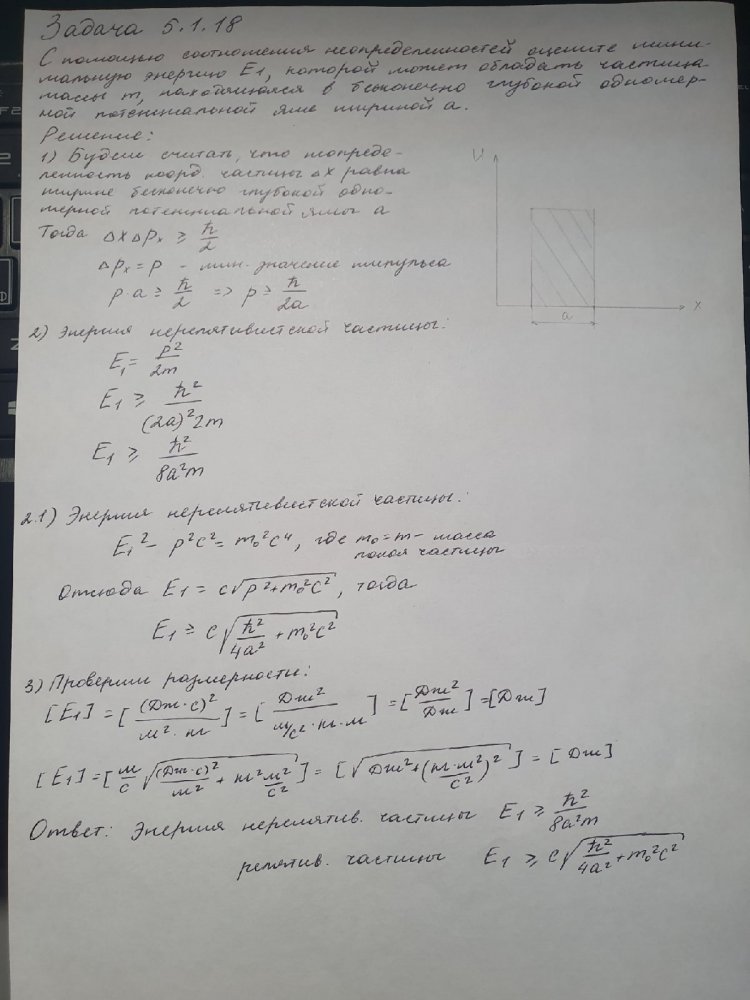 Задача 5.1.18
С помощью соотношения неопределенностей оцените мини-
мальную энергию E1, которой может обладать частица
массы m, находящаяся в бесконечно глубокой одномер-
ной потенциальной яме шириной a.
Решение:
1) Будем считать, что неопреде-
ленность коорд. частицы Δx равна
ширине бесконечно глубокой одно-
мерной потенциальной ямы a
Тогда Δx Δpₓ ≥ ħ/2
Δpₓ = p - мин. значение импульса
p·a ≥ ħ/2 => p ≥ ħ/2a
U
x
a
2) Энергия нерелятивистской частицы:
E₁ = p²/2m
E₁ ≥ ħ²/(2a)²2m
E₁ ≥ ħ²/8a²m
2.1) Энергия нерелятивистской частицы:
E₁² - p²c² = m₀²c⁴, где m₀ = m - масса
покоя частицы
Отсюда E₁ = c√(p²+m₀²c²), тогда
E₁ ≥ c√(ħ²/4a² + m₀²c²)
3) Проверим размерности:
[E₁] = [(Дж·с)²/м²·кг] = [Дж²/м/с²·кг·м] = [Дж²/Дж] = [Дж]
[E₁] = [м/с √((Дж·с)²/м² + кг²м²/с²)] = [√(Дж²+(кг·м²/с²)²)] = [Дж]
Ответ: Энергия нерелятив. частицы E₁ ≥ ħ²/8a²m
релятив. частицы E₁ ≥ c√(ħ²/4a² + m₀²c²)